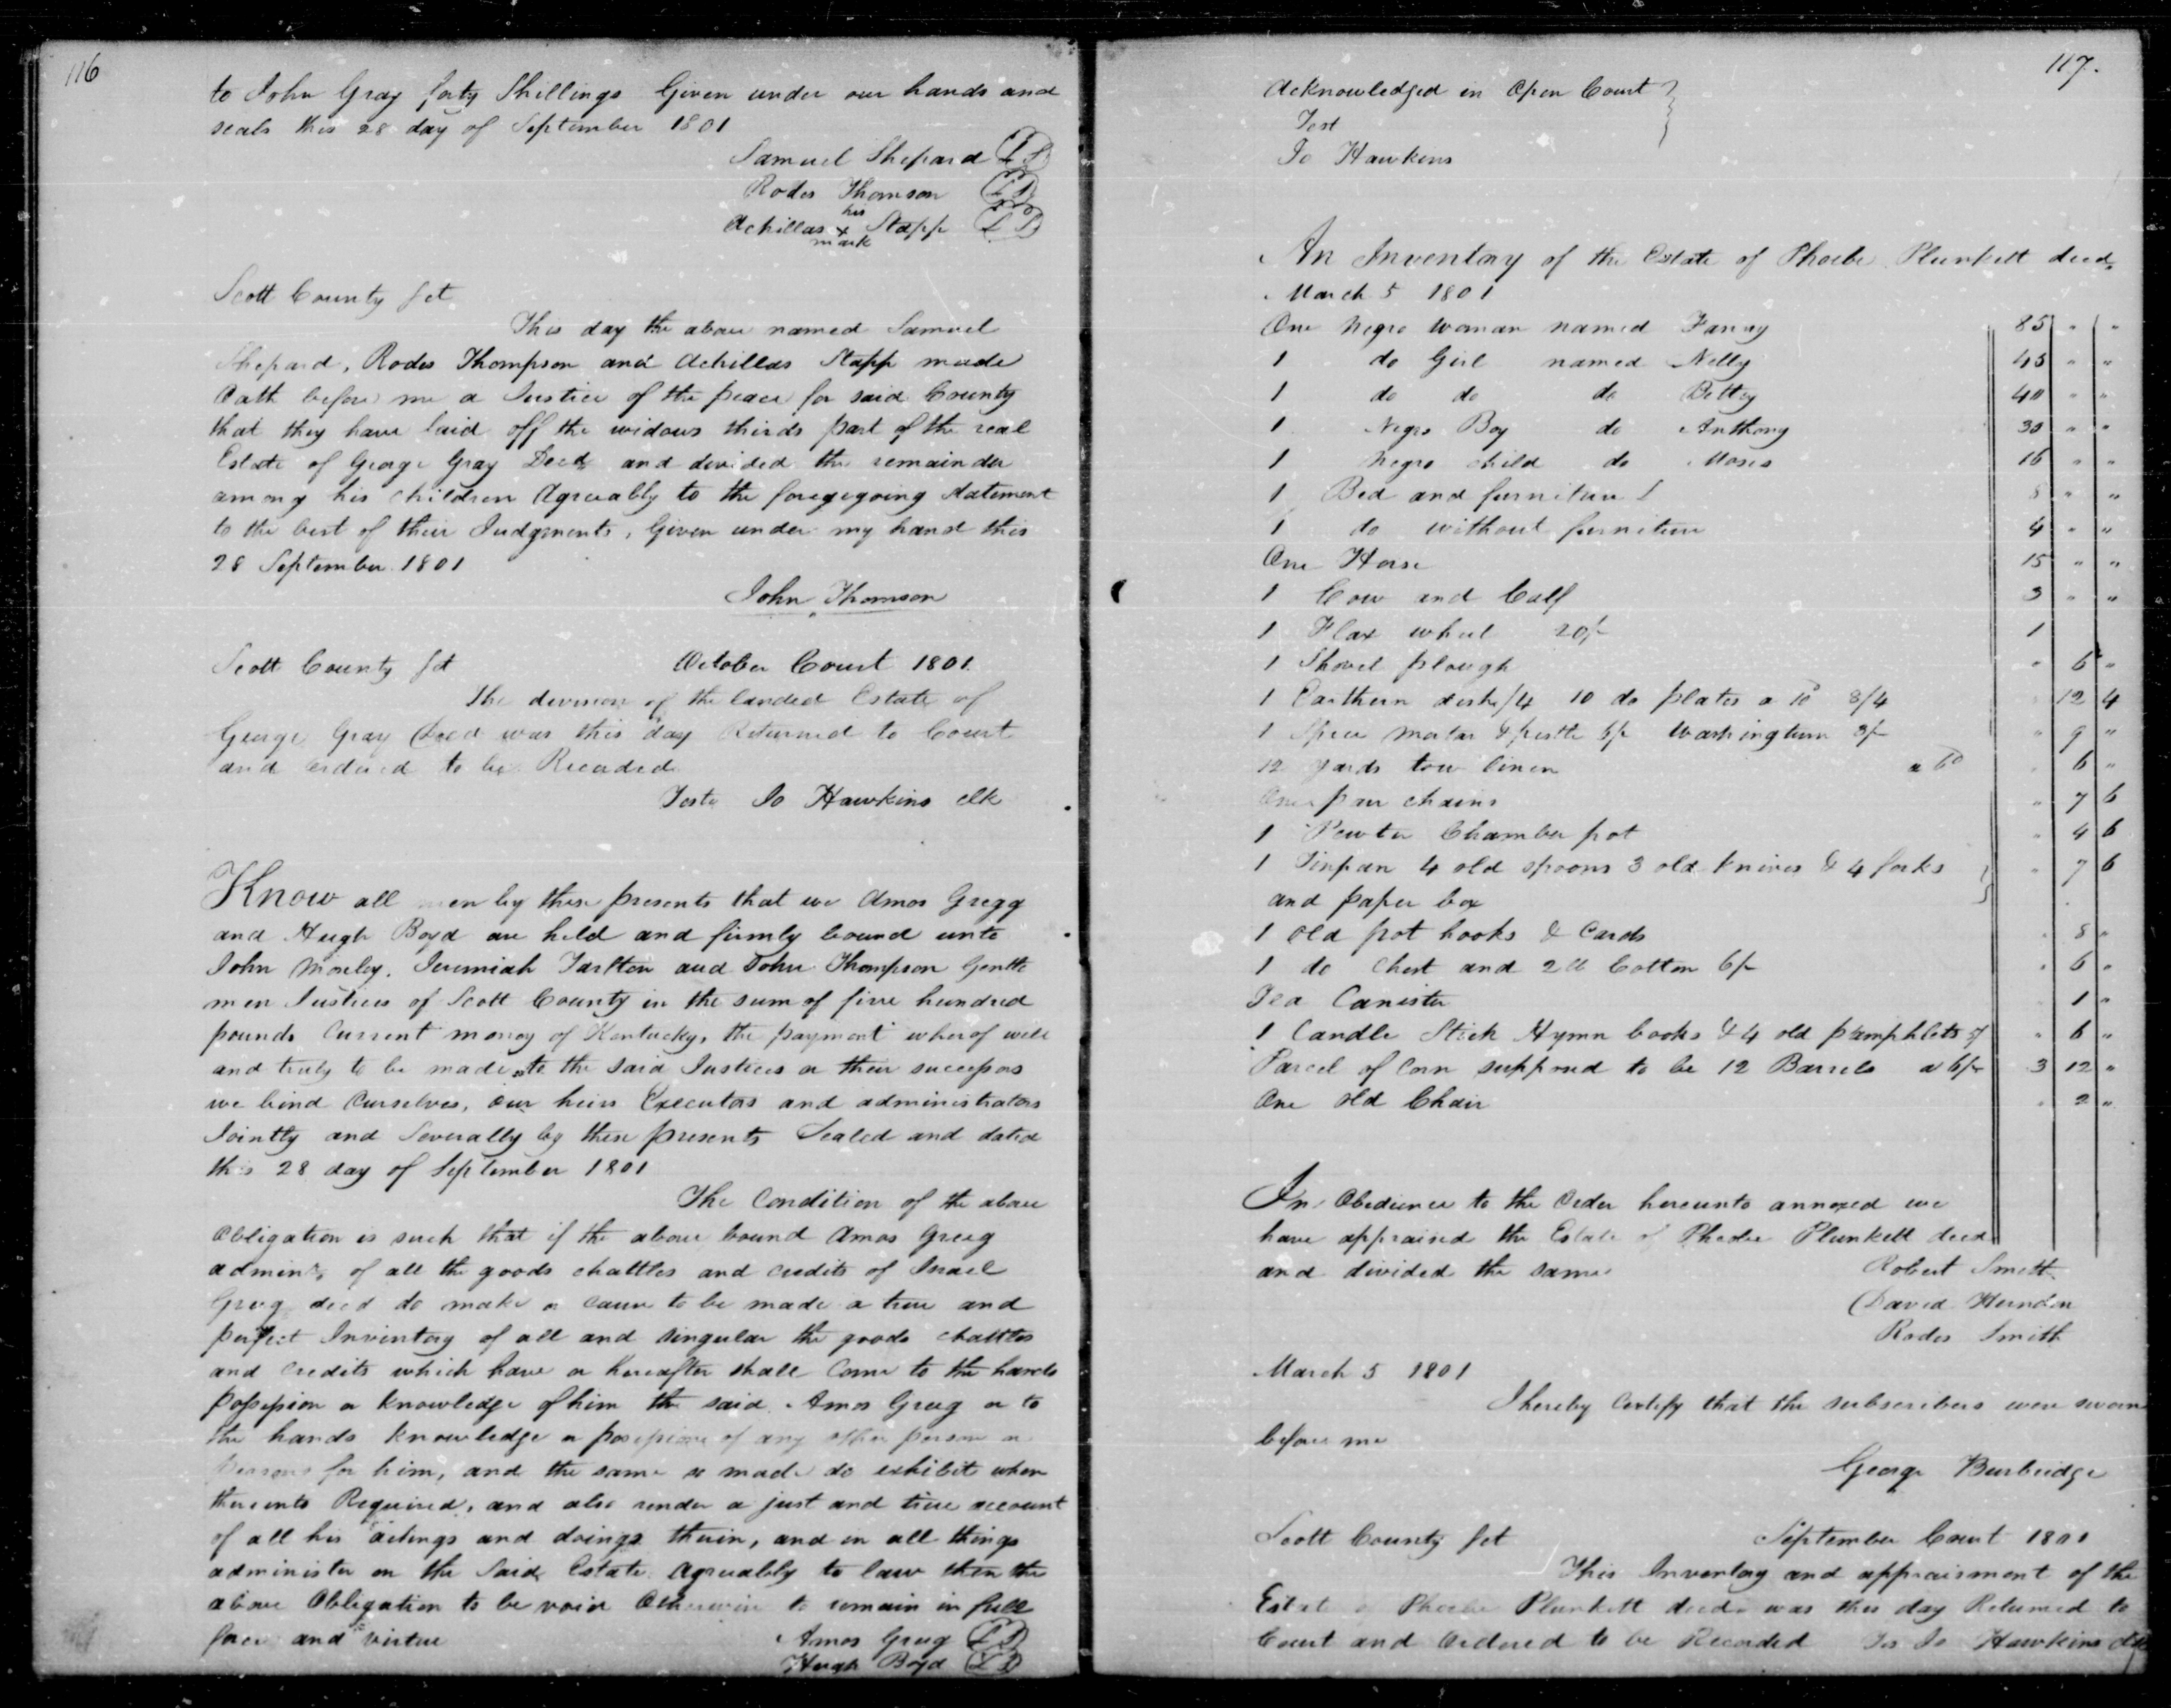 116
to John Gray forty Shillings Given under our hands and
seals this 28 day of September 1801
Samuel Shepard LS
Rodes Thomson LS
his
Achillas x Stapp LS
mark
Scott County Sct
This day the above named Samuel
Shepard, Rodes Thompson and Achillas Stapp made
Oath before me a Justice of the peace for said County
that they have laid off the widows thirds part of the real
Estate of George Gray Decd and devided the remainder
among his children Agreeably to the foregegoing statement
to the best of their Judgments, Given under my hand this
28 September 1801
John Thomson
Scott County Sct October Court 1801
The devision of the landed Estate of
George Gray Decd was this day Returned to Court
and ordered to be Recorded
Teste Jo Hawkins clk
Know all men by these presents that we Amos Gregg
and Hugh Boyd are held and firmly bound unto
John Mosley, Jeremiah Tarlton and John Thompson Gentle
men Justices of Scott County in the sum of five hundred
pounds Current money of Kentucky, the payment wherof well
and truly to be made to the said Justices or their successors
we bind Ourselves, our heirs Executors and administrators
Jointly and Severally by these presents Sealed and dated
this 28 day of September 1801
The Condition of the above
Obligation is such that if the above bound Amos Greg
adminr, of all the goods chattles and credits of Israel
Greg decd do make or cause to be made a true and
perfect Inventory of all and singular the goods chattles
and credits which have or hereafter shall Come to the hands
possession or knowledge of him the said Amos Greg or to
the hands knowledge or possession of any other person or
persons for him, and the same so made do exhibit when
thereunto Required, and also render a just and true account
of all his actings and doings therin, and in all things
administer on the said Estate agreeably to law then the
above Obligation to be void Otherwise to remain in full
force and virtue Amos Greg LS
Hugh Boyd LS
117.
Acknowledged in Open Court
Test
Jo Hawkins
An Inventory of the Estate of Phoebe Plunkett decd,
March 5 1801
One Negro Woman named Fanny 85 " "
1 do Girl named Nelly 45 " "
1 do do do Bettey 40 " "
1 Negro Boy do Anthony 30 " "
1 Negro child do Moses 16 " "
1 Bed and furniture 8 " "
1 do without furniture 4 " "
One Horse 15 " "
1 Cow and Calf 3 " "
1 Flax wheel 20/- 1
1 Shovel plough " 6 "
1 Earthern dish /4 10 do plates a 10d 8/4 12 4
1 Spice Mortar & pestle 6/- Washingturn 3/- " 9 "
12 yards tow linen a 6d 6 "
One pair chains " 7 6
1 Pewter Chamber pot " 4 6
1 Tinpan 4 old spoons 3 old knives & 4 forks " 7 6
and paper box
1 old pot hooks & Cards " 8 "
1 do Chest and 2 lb Cotton 6/- " 6 "
Tea Canister 1 "
1 Candle Stick Hymn books & 4 old pamphlets " 6 "
Parcel of Corn supposed to be 12 Barrels a 6/- 3 12 "
One old Chair " 2 "
In Obedience to the Order hereunto annexed we
have appraised the Estate of Phoebe Plunkett decd
and divided the same Robert Smith
David Herndon
Rodes Smith
March 5 1801
I hereby Certify that the subscribers were sworn
before me
George Burbridge
Scott County Sct September Court 1801
This Inventory and appraisment of the
Estate of Phoebe Plunkett decd was this day Returned to
Court and Ordered to be Recorded Tes Jo Hawkins clk